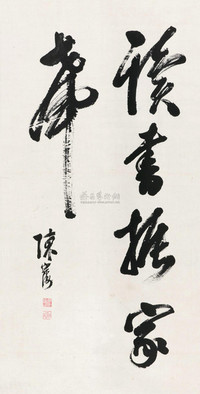 讀書振家
聲
陳